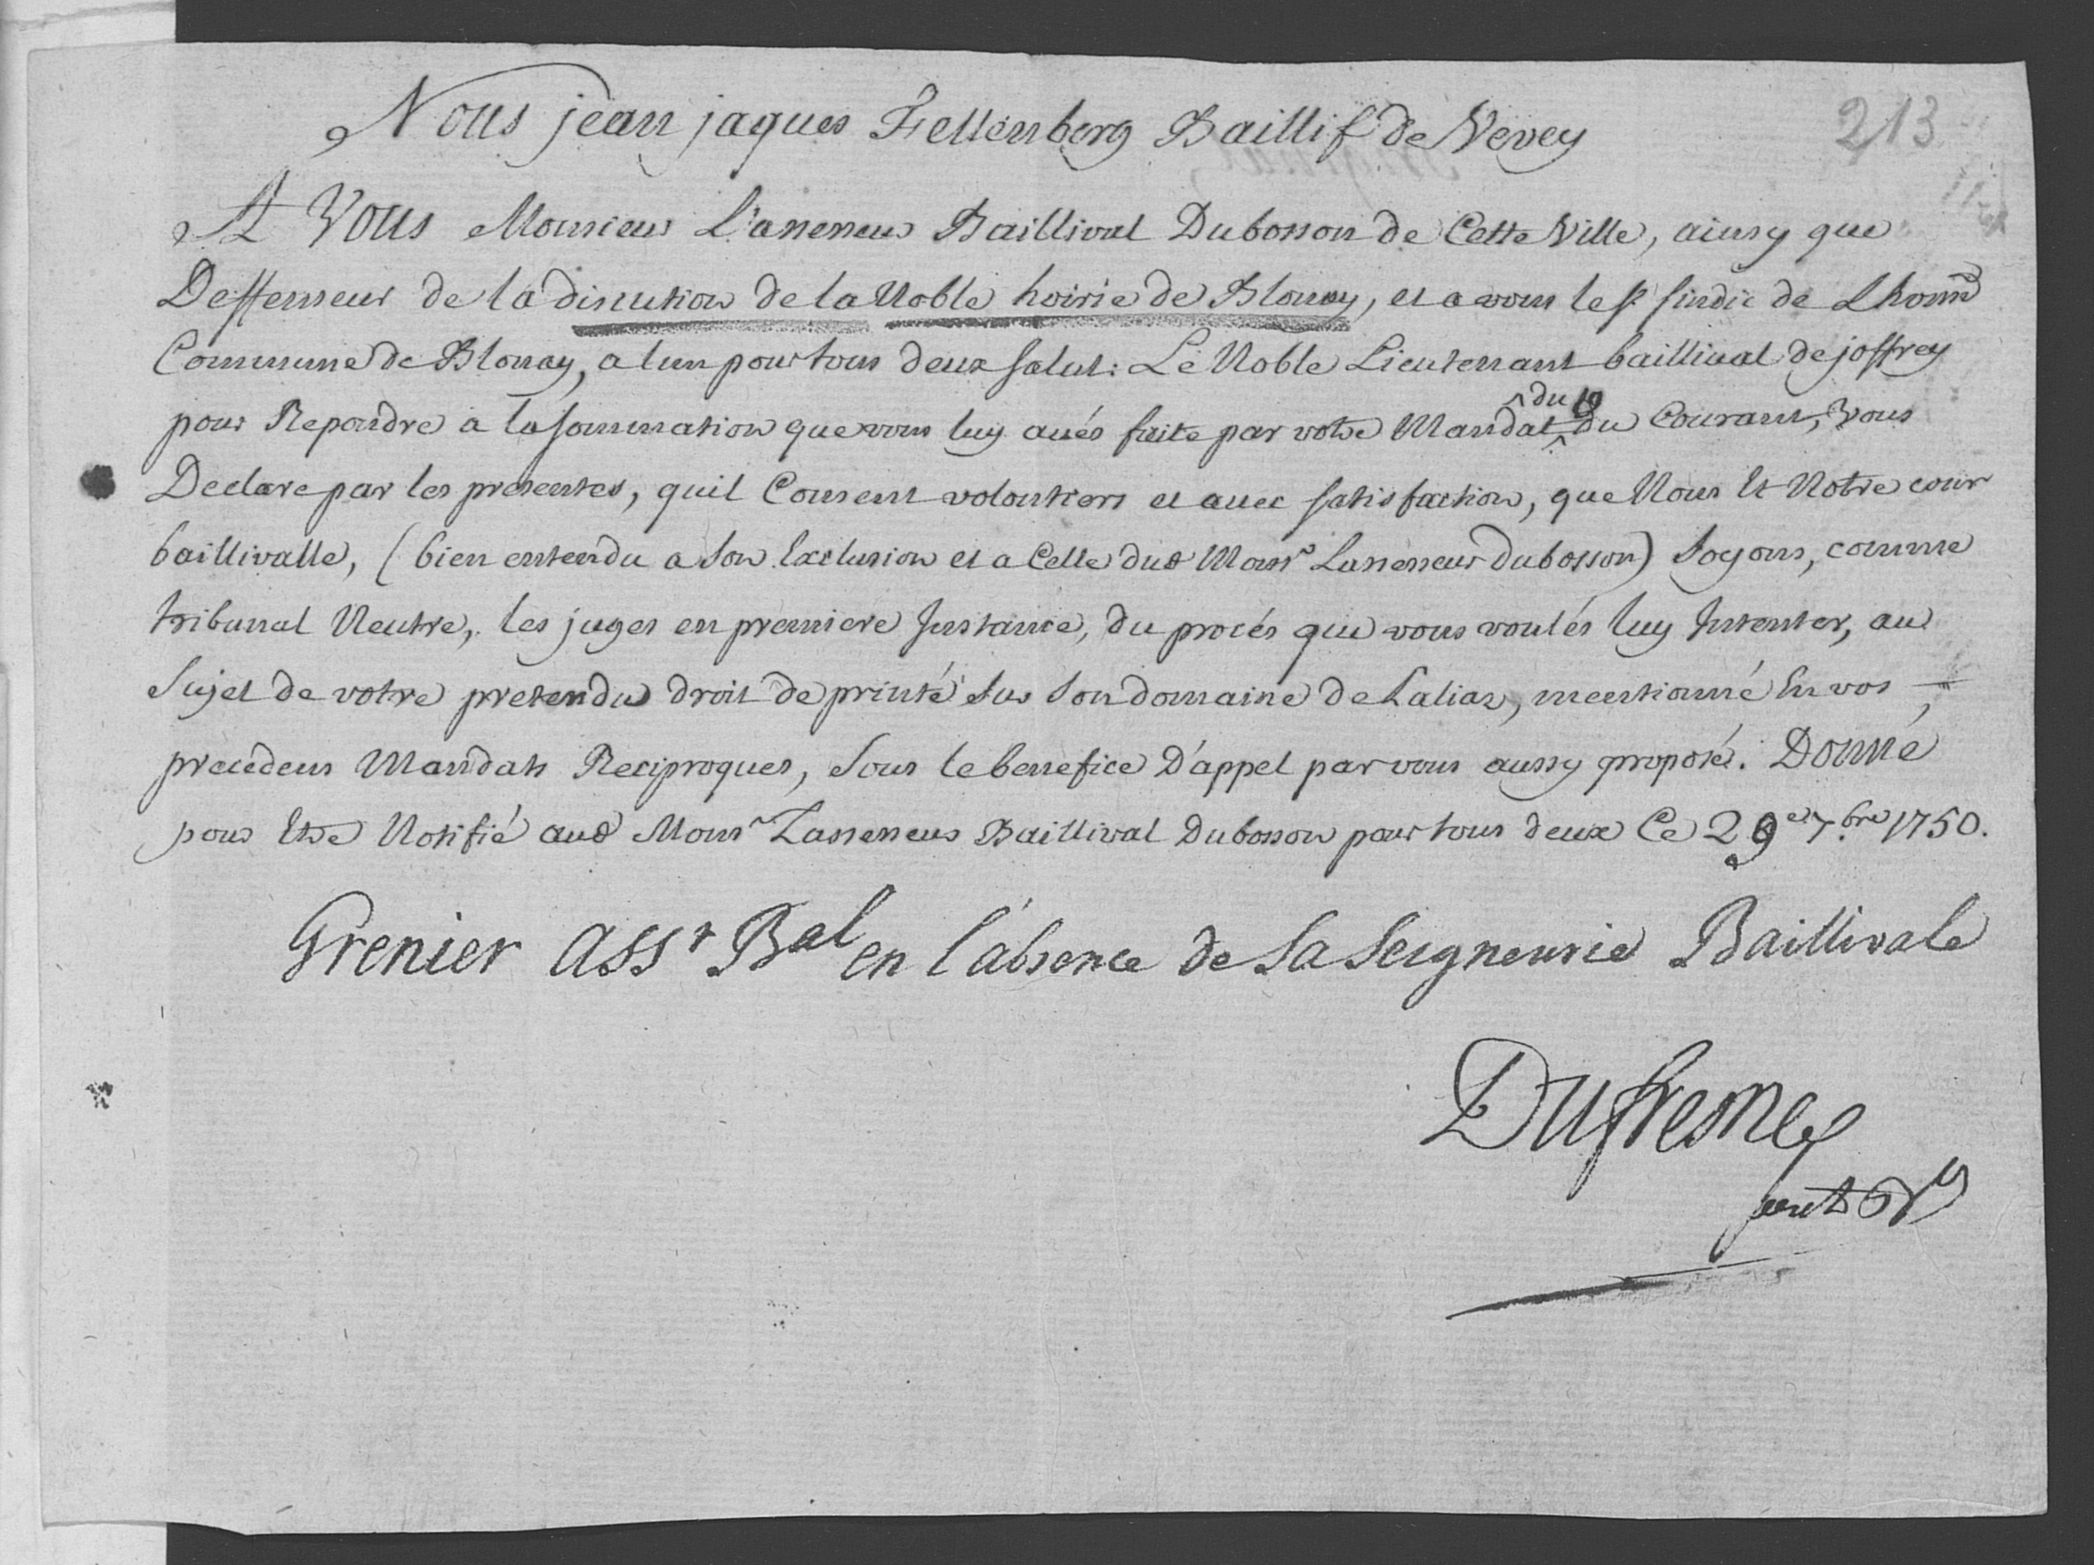 213
Nous jean jaques Fellenberg Baillif de Vevey
A Vous Monsieur L'assesseur Baillival Dubosson de Cette Ville, ainsy que
Deffenseur de la discution de la Noble hoirie de Blonay, et a vous le Sr. sindic de Lhon
Commune de Blonay, a lun pour tous deux salut: Le Noble Lieutenant baillival de joffrey
pour Repondre a la sommation que vous luy avés faite par votre Mandat du 19 du Courant, Vous
Declare par les presentes, quil Consent volontiers et avec satisfaction, que Nous Et Notre cour
baillivalle, (bien entendu a son Exclusion et a Celle dud Monsr Lassesseur Dubosson) soyons, comme
tribunal Neutre, les juges en premiere Instance, du procés que vous voulés luy Intenter, au
Sujet de votre pretendu droit de printé sur son domaine de Laliaz, mentionné En vos
precedens Mandats Reciproques, sous le benefice D'appel par vous aussy proposé. Donné
pour Etre Notifié aud Monsr Lassesseur Baillival Dubosson pour tous deux Ce 29e 7.bre 1750.
Grenier Assr Bal en l'absence de Sa Seigneurie Baillivale
Dufresne